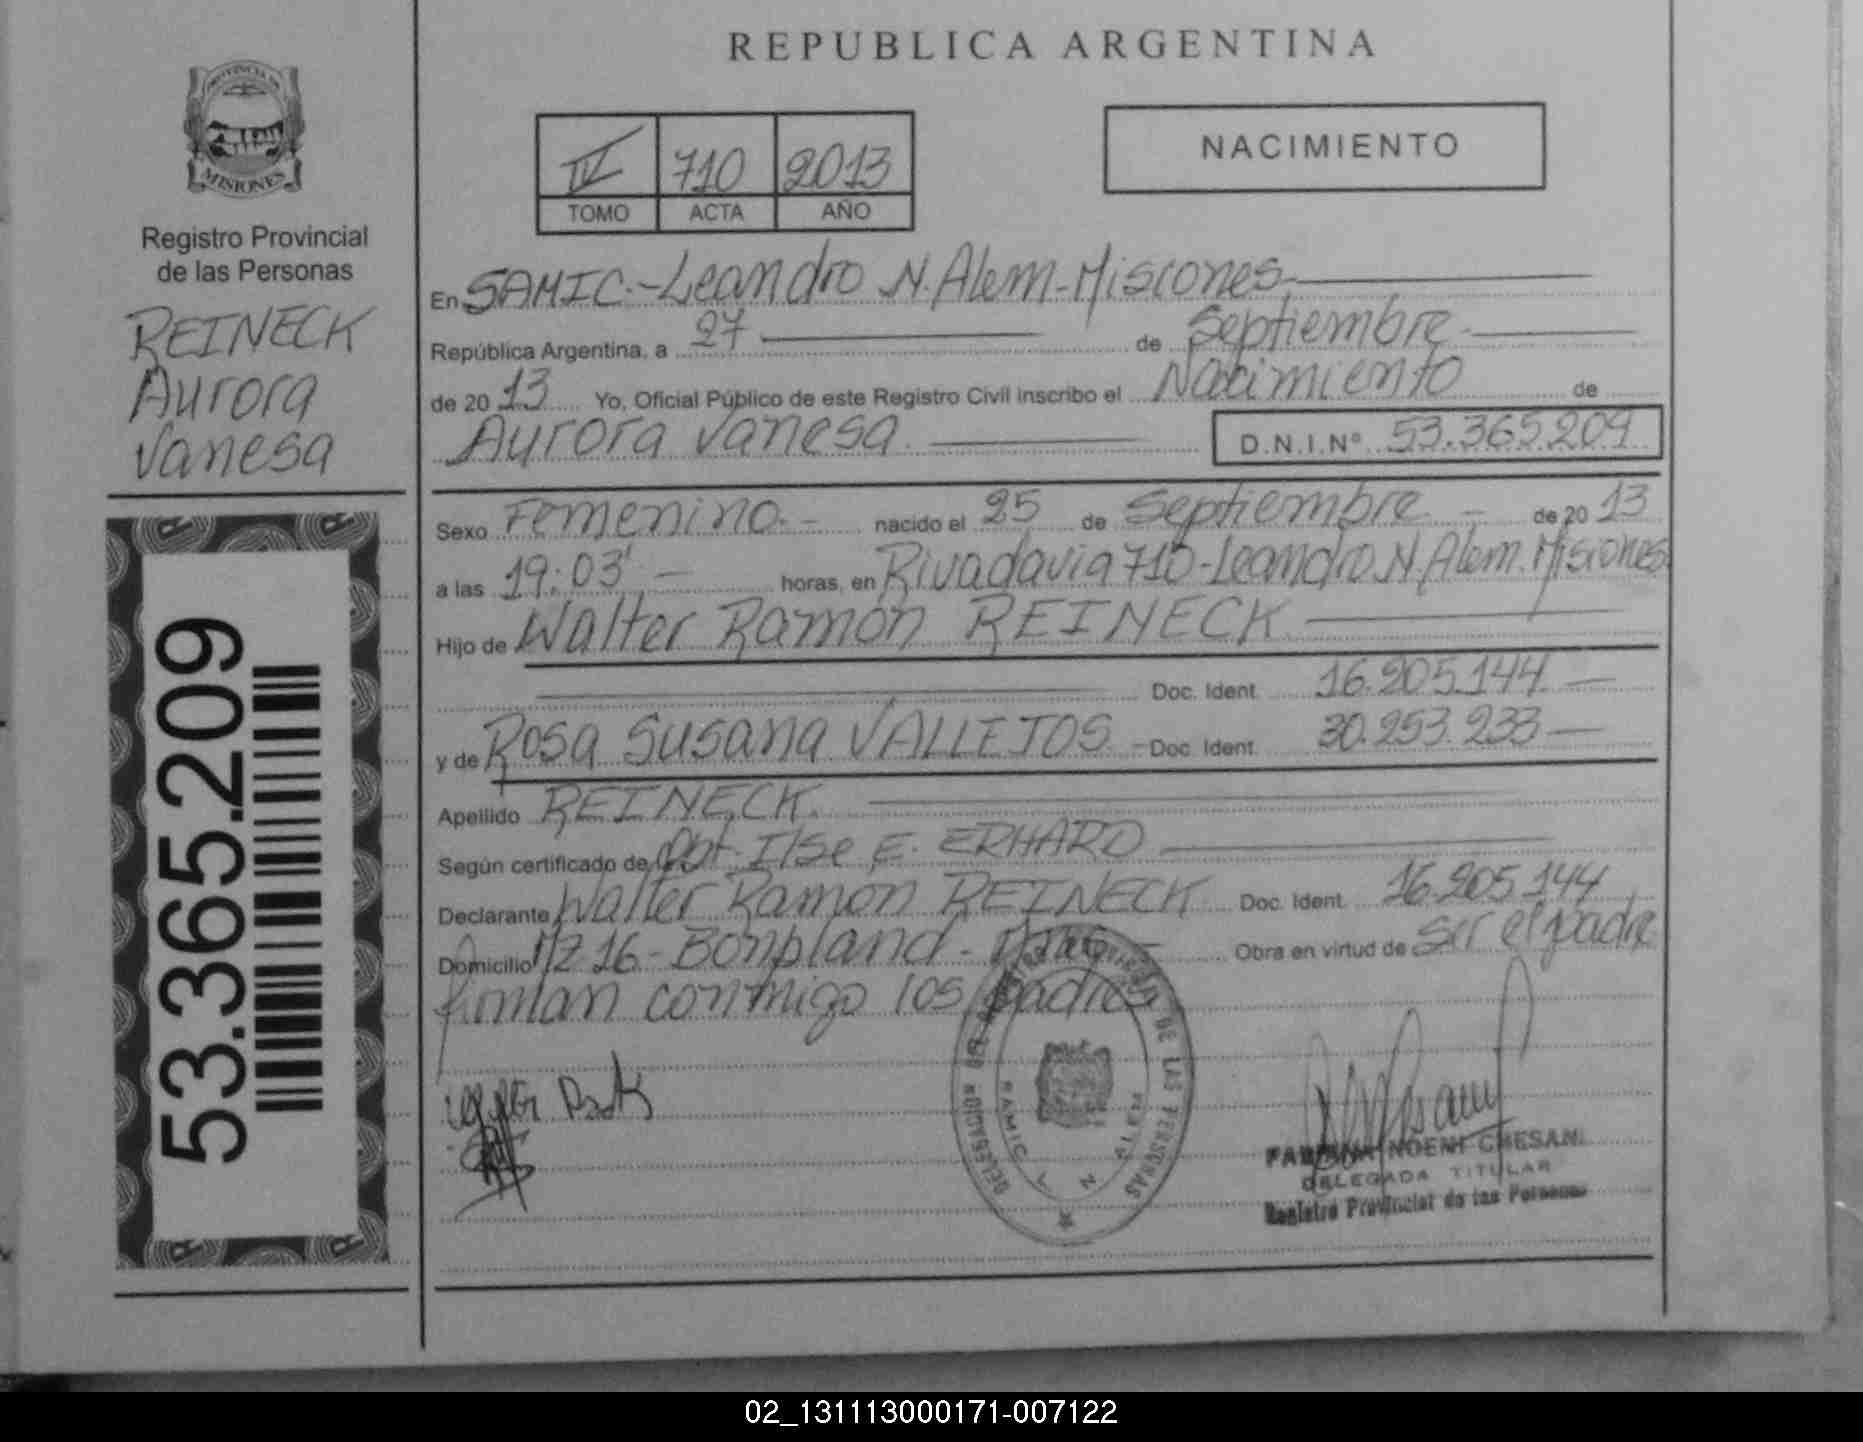 REPUBLICA ARGENTINA
PROVINCIA DE
MISIONES
Registro Provincial
de las Personas
REINECK
Aurora
Vanesa
53.365.209
IV 710 2013
TOMO ACTA AÑO
NACIMIENTO
En SAMIC.-Leandro N. Alem-Misiones
República Argentina, a 27 de Septiembre
de 2013 Yo, Oficial Público de este Registro Civil inscribo el Nacimiento de
Aurora Vanesa. D.N.I.Nº 53.365.209
Sexo Femenino.- nacido el 25 de Septiembre - de 2013
a las 19:03' - horas, en Rivadavia 710-Leandro N. Alem. Misiones
Hijo de Walter Ramón REINECK
Doc. Ident. 16.205.144 -
y de Rosa Susana VALLEJOS - Doc. Ident. 30.253.233 -
Apellido REINECK.
Según certificado de Obt. Ilse E. ERHARD
Declarante Walter Ramon REINECK Doc. Ident. 16.205.144
Domicilio Mz 16 - Bonpland - Obra en virtud de ser el padre
firman conmigo los padres
DE LAS PERSONAS
DELEGACION
SAMIC
L N
NOEMI CHESANI
DELEGADA TITULAR
Registro Provincial de las Personas
02_131113000171-007122